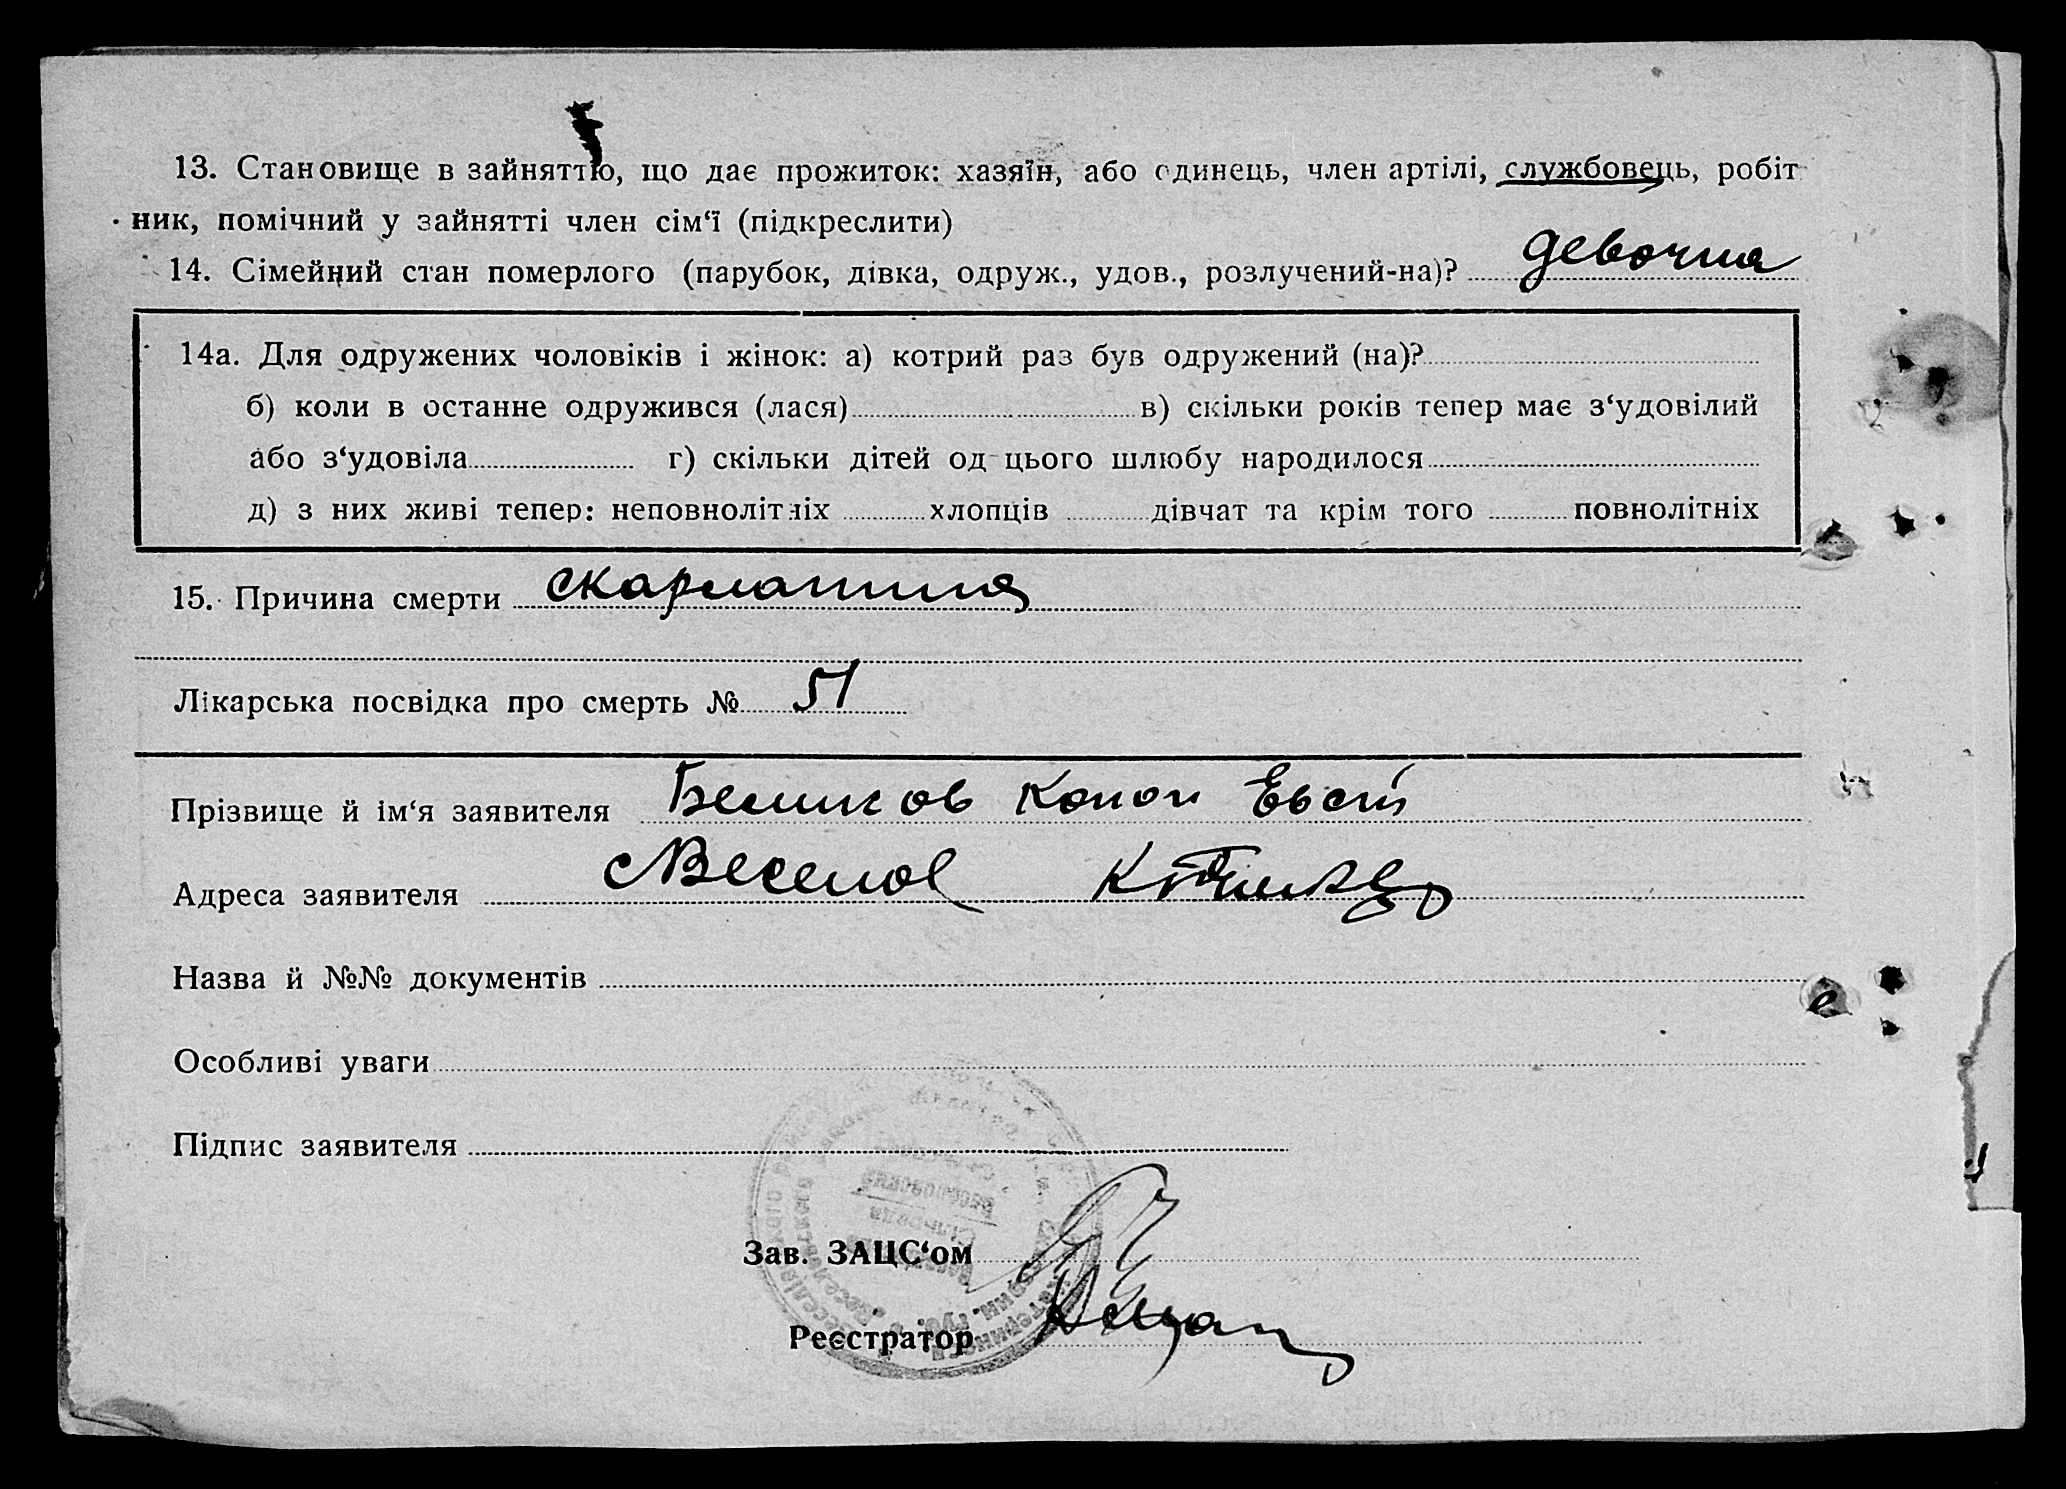 13. Становище в зайняттю, що дає прожиток: хазяїн, або одинець, член артілі, службовець, робіт-
ник, помічний у зайнятті член сім‘ї (підкреслити)
14. Сімейний стан померлого (парубок, дівка, одруж., удов., розлучений-на)? девочка
14а. Для одружених чоловіків і жінок: а) котрий раз був одружений (на)?
б) коли в останне одружився (лася) в) скільки років тепер має з‘удовілий
або з‘удовіла г) скільки дітей од цього шлюбу народилося
д) з них живі тепер: неповнолітніх хлопців дівчат та крім того повнолітніх
15. Причина смерти скарлатина
Лікарська посвідка про смерть № 51
Прізвище й ім‘я заявителя Беликов Конон Евст
Адреса заявителя с Веселое
Назва й №№ документів
Особливі уваги
Підпис заявителя
Зав. ЗАЦС‘ом
Реєстратор